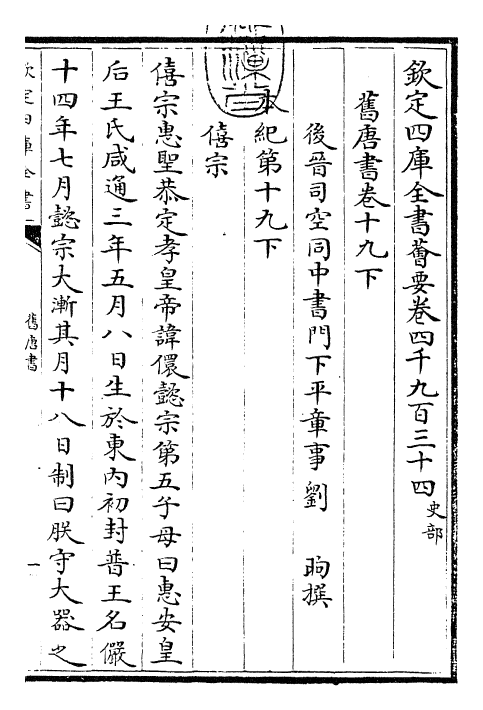 欽定四庫全書薈要卷四千九百三十四 史部
舊唐書卷十九下
後晉司空同中書門下平章事劉 昫撰
本紀第十九下
僖宗
僖宗惠聖恭定孝皇帝諱儇懿宗第五子母曰惠安皇
后王氏咸通三年五月八日生於東內初封普王名儼
十四年七月懿宗大漸其月十八日制曰朕守大器之
欽定四庫全書
舊唐書
一